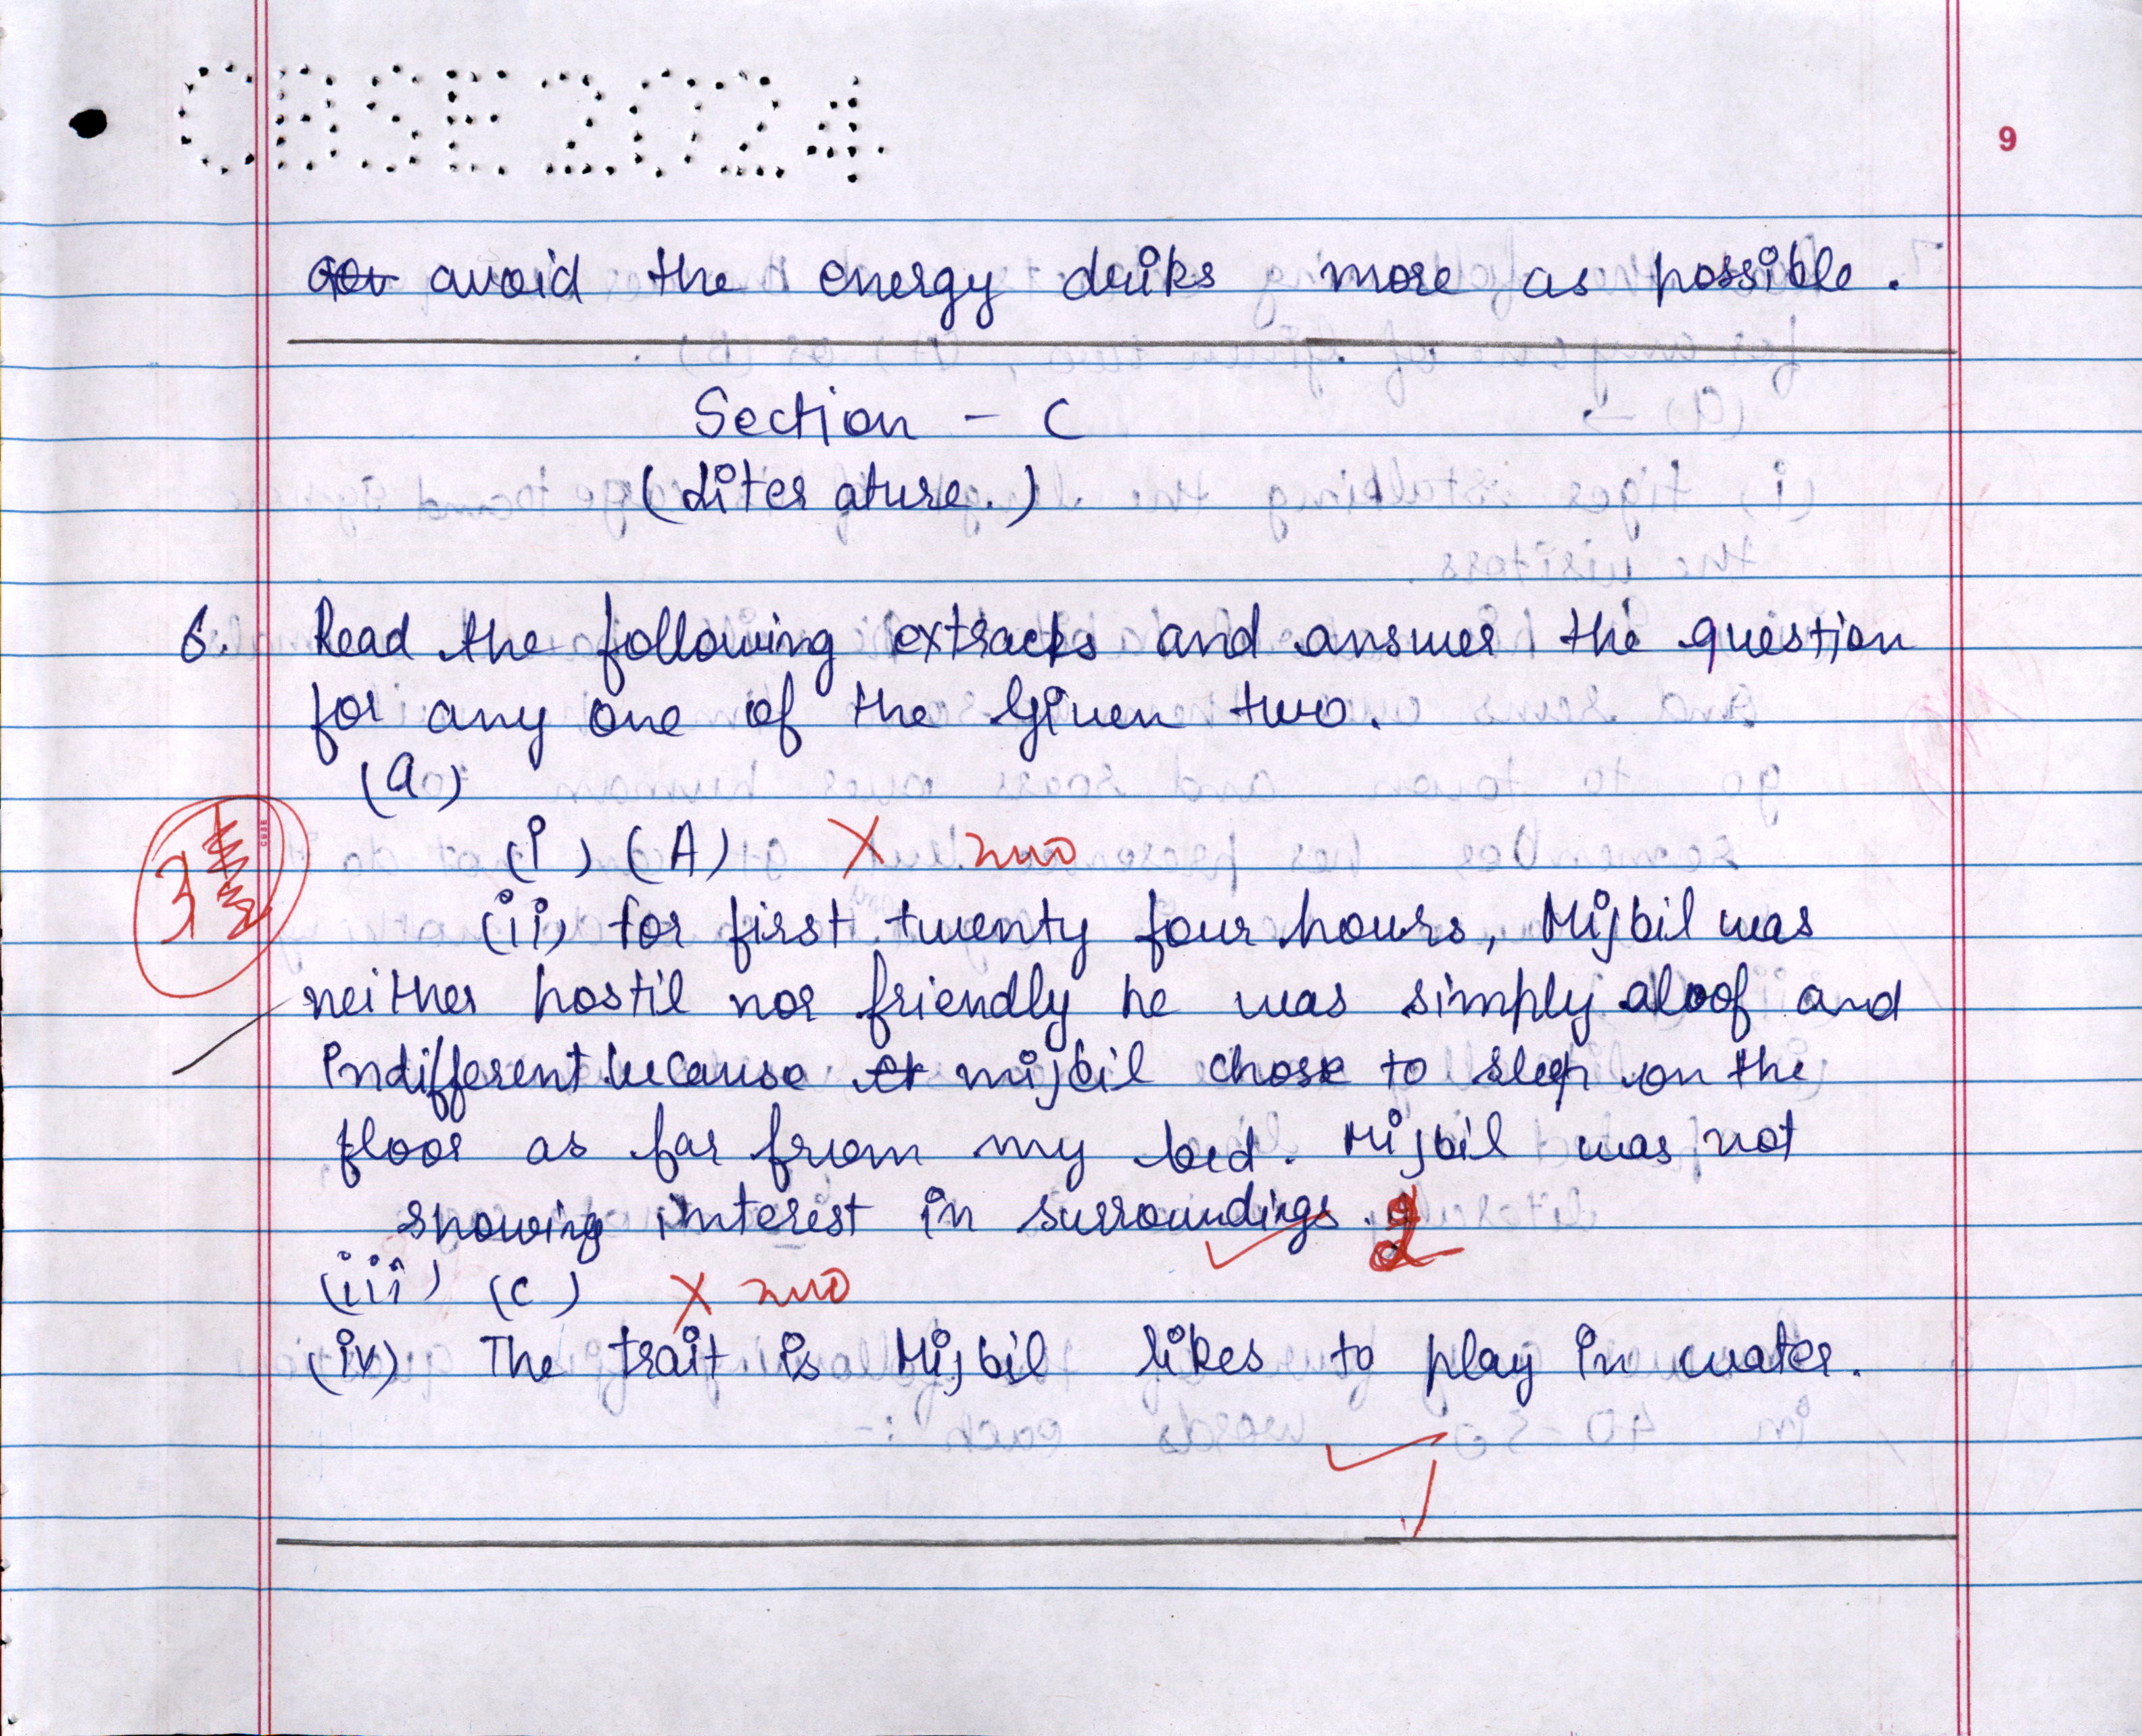 CBSE 2024
9
avoid the energy driks more as possible.
Section - C
(Literature.)
6. Read the following extracts and answer the question
for any one of the Given two.
(a)
(i) (A) X zero
3
(ii) for first twenty four hours, Mijbil was
neither hostil nor friendly he was simply aloof and
indifferent because mijbil chose to sleep on the
floor as far from my bed. Mijbil was not
showing interest in surroundings. 2
(iii) (c) X zero
(iv) The trait is Mijbil likes to play in water.
1